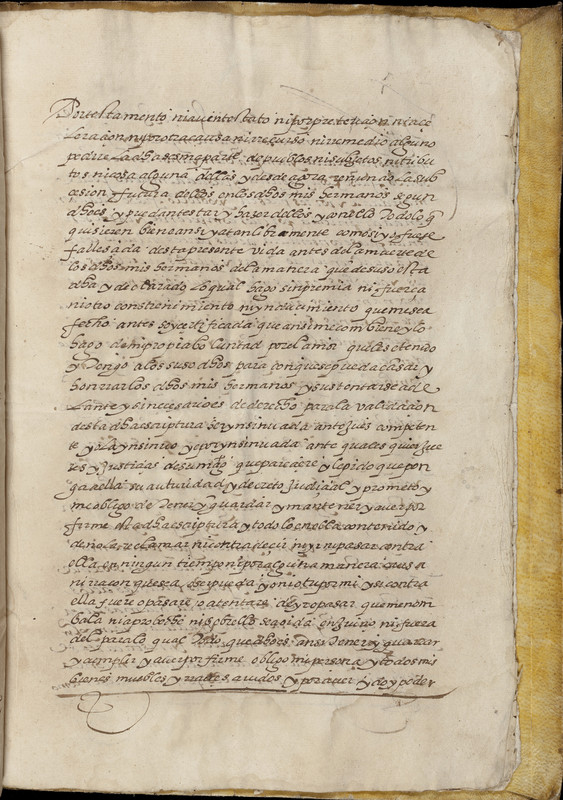 Por testamento ni aventestato ni por pretençion ni açe
leraçion ny por otra causa ni rrecurso ni rremedio alguno
pedire la dha sesma parte de pueblos ni subjetos ni tribu
tos ni cosa alguna dellos y desde agora rrenunçio la sub
çesion futura dellos en los dhos mis hermanos segun
dho es y puedan testar y hazer dellos y en ello todo lo q
quisieren bien ansi y a tan libremente como si yo fuese
fallesçida desta presente vida antes de la muerte de
los dhos mis hermanos de la manera que de suso esta
dha y declarado lo qual hago sin premia ni fuerça
ni otro constrenimiento ni ynduzimiento que me sea
fecho antes soy çertificada que ansi me combiene y lo
hago de mi propia boluntad por el amor que les e tenido
y tengo a los suso dhos para con que se pueda casar y
honrrar los dhos mis hermanos y sustentarse ade
lante y si neçesario es de derecho para la validaçion
desta dha escriptura ser ynsinuada ante juez competen
te yo la ynsinuo y e por ynsinuada ante quales quier jue
zes y justiçias de su magd que paresçiere y les pido que pon
gan a ella su autoridad y decreto judiçial y prometo y
me obligo de tener y guardar y mantener y aver por
firme la dha escriptura y todo lo en ella contenido y
de no la rreclamar ni contradeçir ni yr ni pasar contra
ella en ningun tiempo ni por alguna manera causa
ni rraçon que sea o ser pueda yo ni otro por mi y si contra
ella fuere o pasare o atentare de yr o pasar que me non
bala ni aprobeche ni sobrello sea oida en juizio ni fuera
del para lo qual todo que dho es ansi tener y guardar
y cumplir y aver por firme obligo mi persona y todos mis
bienes muebles y rraizes avidos y por aver y doy poder